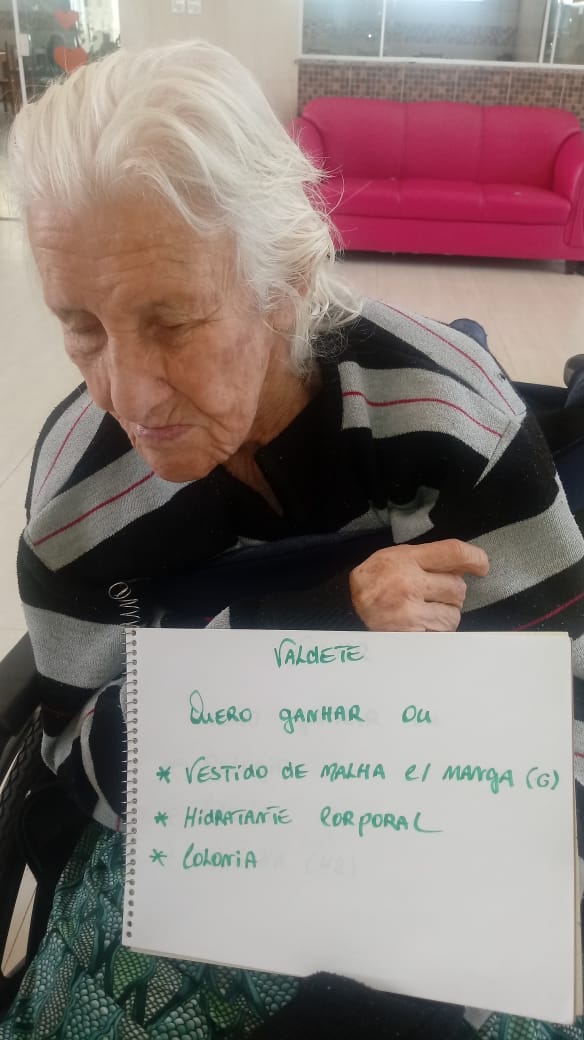 VALDETE
QUERO GANHAR OU
* VESTIDO DE MALHA C/ MANGA (G)
* HIDRATANTE CORPORAL
* COLONIA